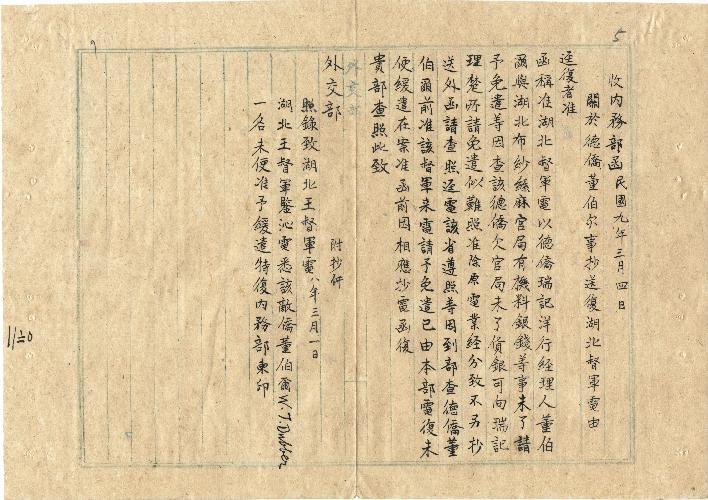 5
收內務部函民國九年三月四日
關於德僑董伯爾事抄送復湖北督軍電由
逕復者准
函稱准湖北督軍電以德僑瑞記洋行經理人董伯
爾與湖北布紗絲麻官局有機料銀錢等事未了請
予免遣等因查該德僑欠官局未了貨銀可向瑞記
理楚所請免遣似難照准除原電業經分致不另抄
送外函請查照逕電該省遵照等因到部查德僑董
伯爾前准該督軍來電請予免遣已由本部電復未
便緩遣在案准函前因相應抄電函復
貴部查照此致
外交部
外交部
附抄件
照錄致湖北王督軍電八年三月一日
湖北王督軍鑒沁電悉該敵僑董伯爾W. T. Dubber
一名未便准予緩遣特復內務部東印